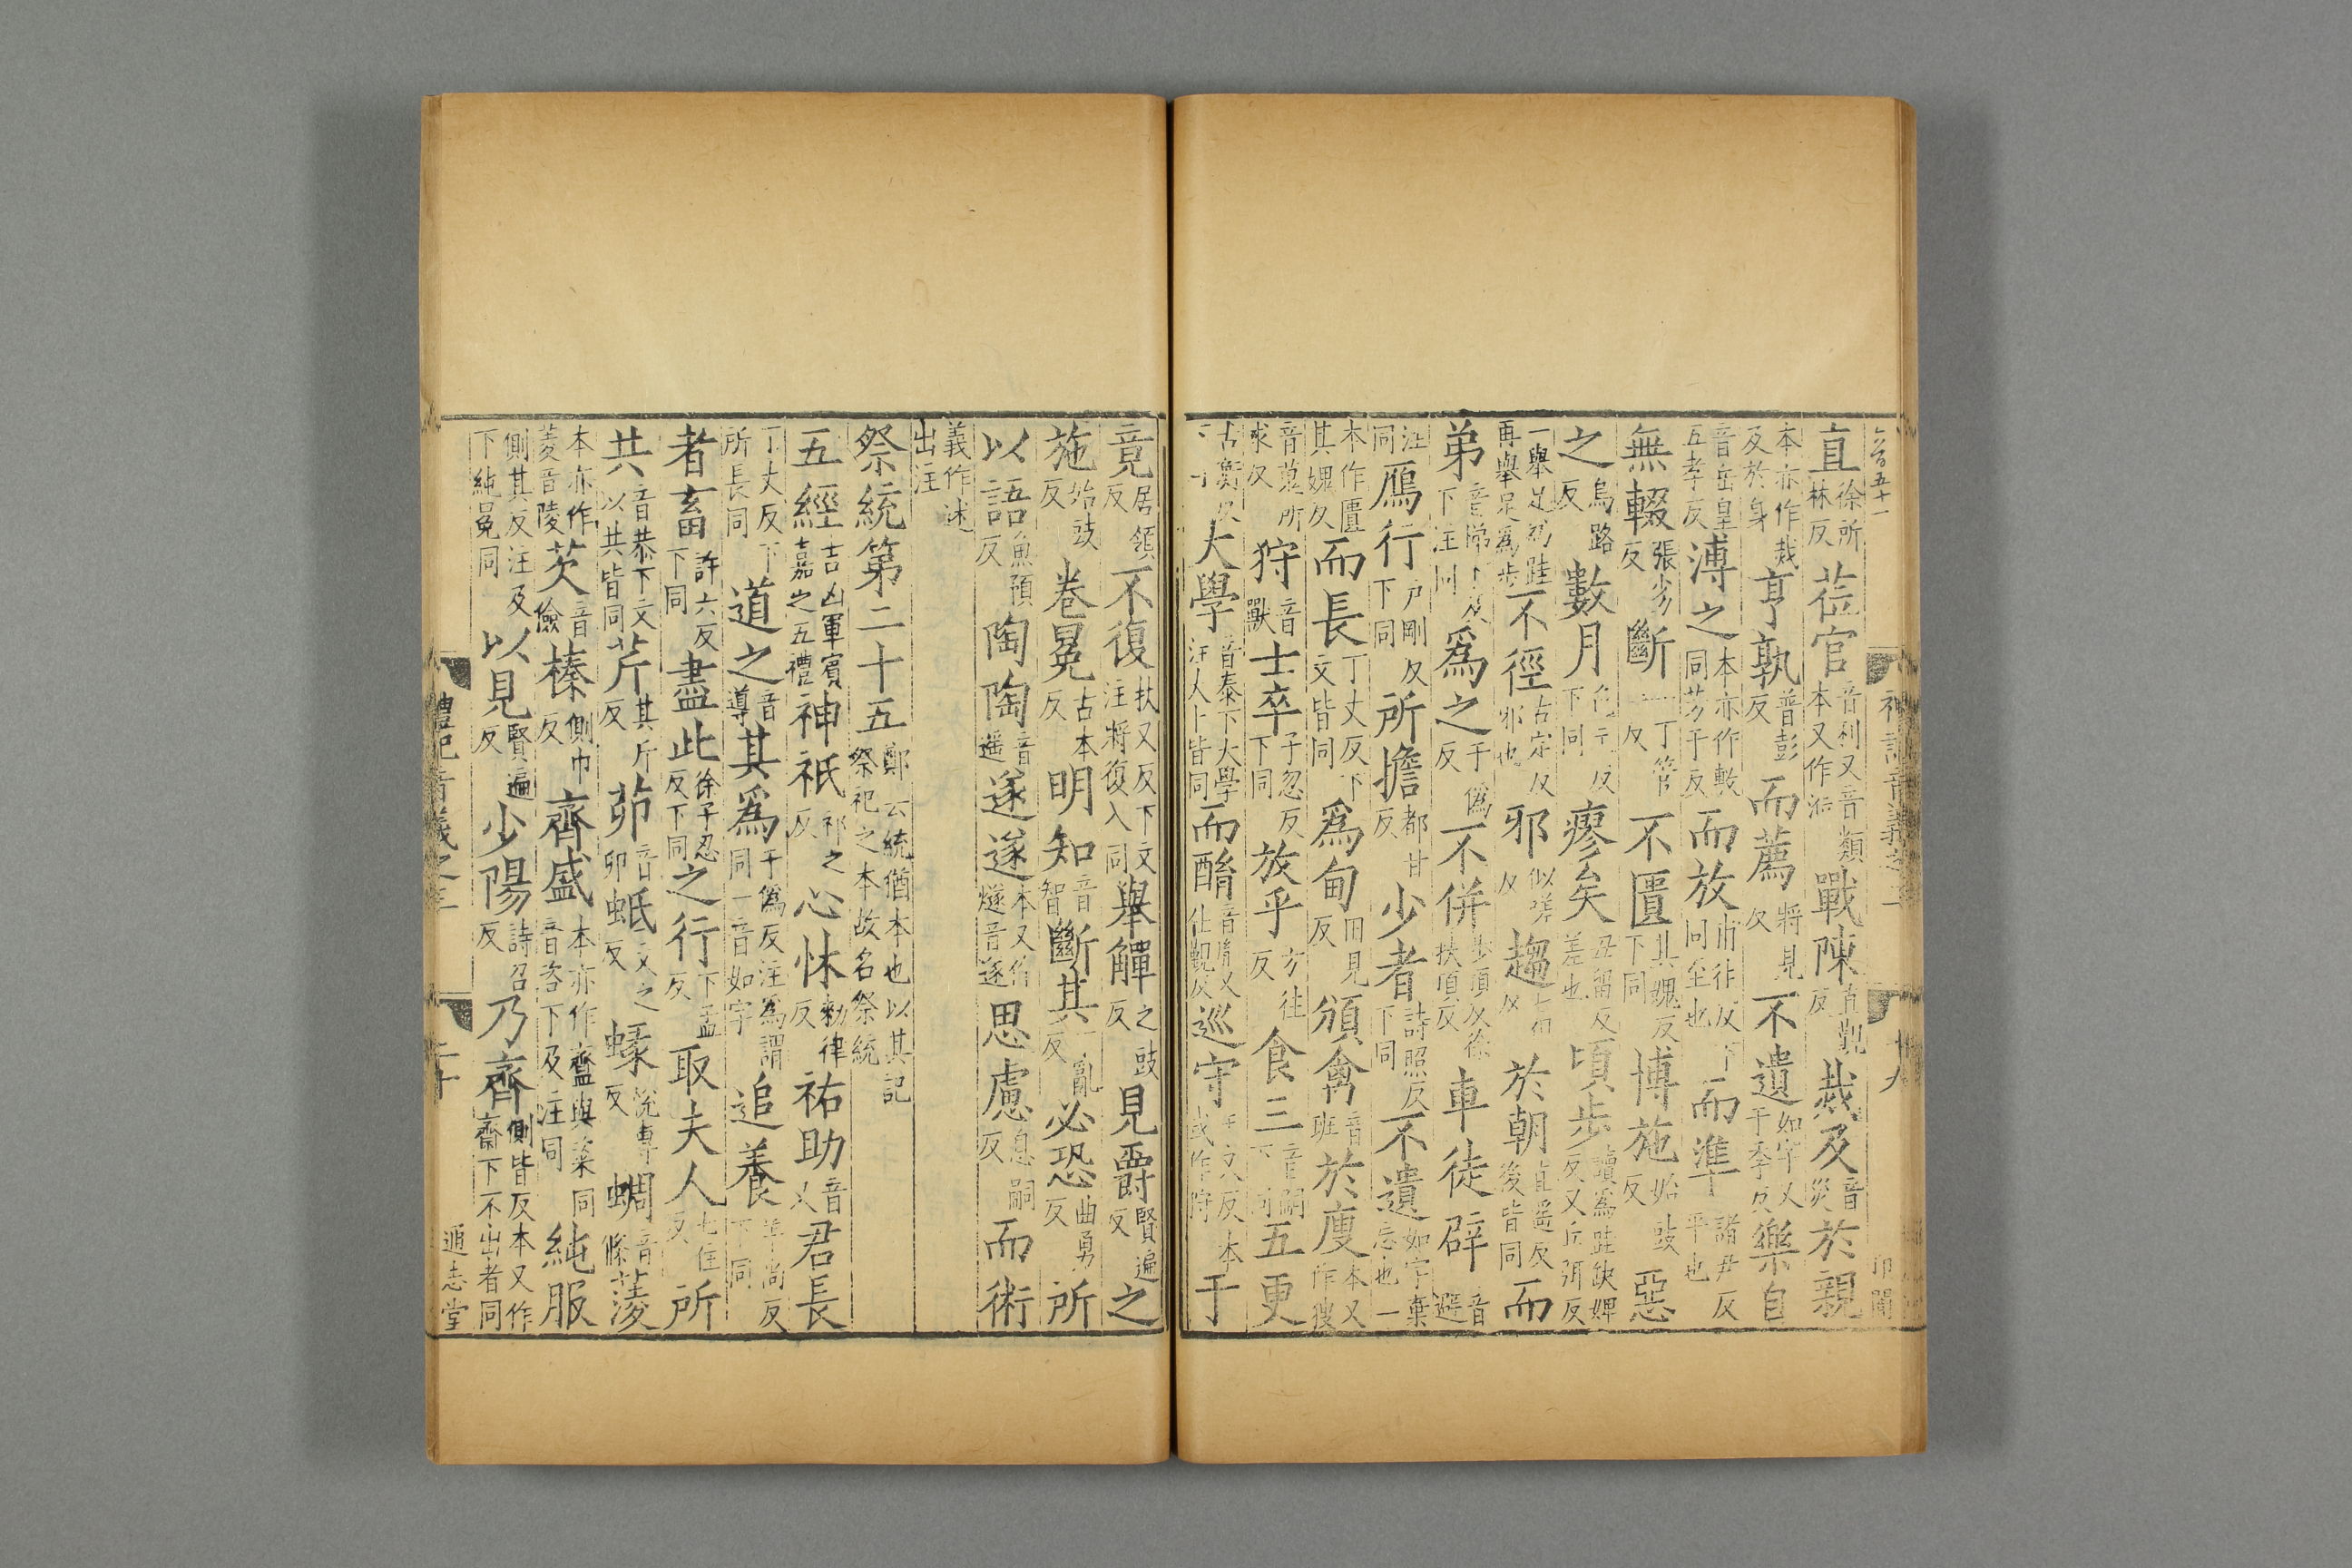 直徐所林反莅官音利又音類本又作涖戰陳直覲反烖及音災於親
本亦作烖及於身亨孰普彭反而薦將見反不遺如字又于季反樂自
音岳皇五孝反溥之本亦作敷同芳于反而放甫往反下同至也而準諸尹反平也
無輟張劣反斷一丁管反不匱其媿反下同博施始豉反惡
之烏路反數月色主反下同瘳矣丑留反差也頃步讀爲跬缺婢反又丘弭反
一舉足爲跬再舉足爲步不徑古定反邪也邪似嗟反趨七須反於朝直遥反後皆同而
弟音悌下及下注同爲之于僞反不併步頂反徐扶頂反車徒辟音避
注同鴈行户剛反下同所擔都甘反少者詩照反下同不遺如字棄忘也一
本作匱其媿反而長丁丈反下文皆同爲甸田見反頒禽音班於廋本又作獀
音蒐所求反狩音獸士卒子忽反下同放乎方往反食三音嗣下同五更
古衡反大學音泰下大學注人上皆同而酳音胤又仕覲反巡守手又反本或作狩于
竟居領反不復扶又反下文注將復入同舉觶之豉反見爵賢遍反之
施始豉反卷冕古本反明知音智斷其丁亂反必恐曲勇反所
以語魚預反陶陶音遥遂遂本又作燧音遂思慮息嗣反而術
義作述出注
祭統第二十五鄭云統猶本也以其記祭祀之本故名祭統
五經吉凶軍賓嘉之五禮神祇祁之反心怵勑律反祐助音又君長
丁丈反下所長同道之音導其爲于僞反注爲謂同一音如字追養羊尚反下同
者畜許六反下同盡此徐子忍反下同之行下孟反取夫人七住反所
共音恭下文以共皆同芹其斤反茆音卯蚳丈之反蝝悦專反蜩音條蔆
本亦作菱音陵芡音儉榛側巾反齊盛本亦作齍與粢同音咨下及注同純服
側其反注及下純冕同以見賢遍反少陽詩召反乃齊側皆反本又作齋下不出者同
禮記音義之三
二十
通志堂